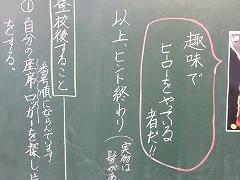 趣味で
ヒーローをやっている
者だ!!
以上、ヒント終わり
(実物は
髪があ
登校後すること
番号順にならんでいます
①自分の座席、ロッカーを探し、
をする。